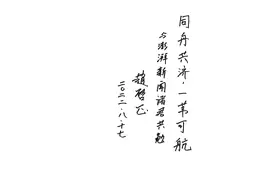 同舟共济·一苇可航
与澎湃新闻诸君共勉
赵启正
二〇二二·八·十七